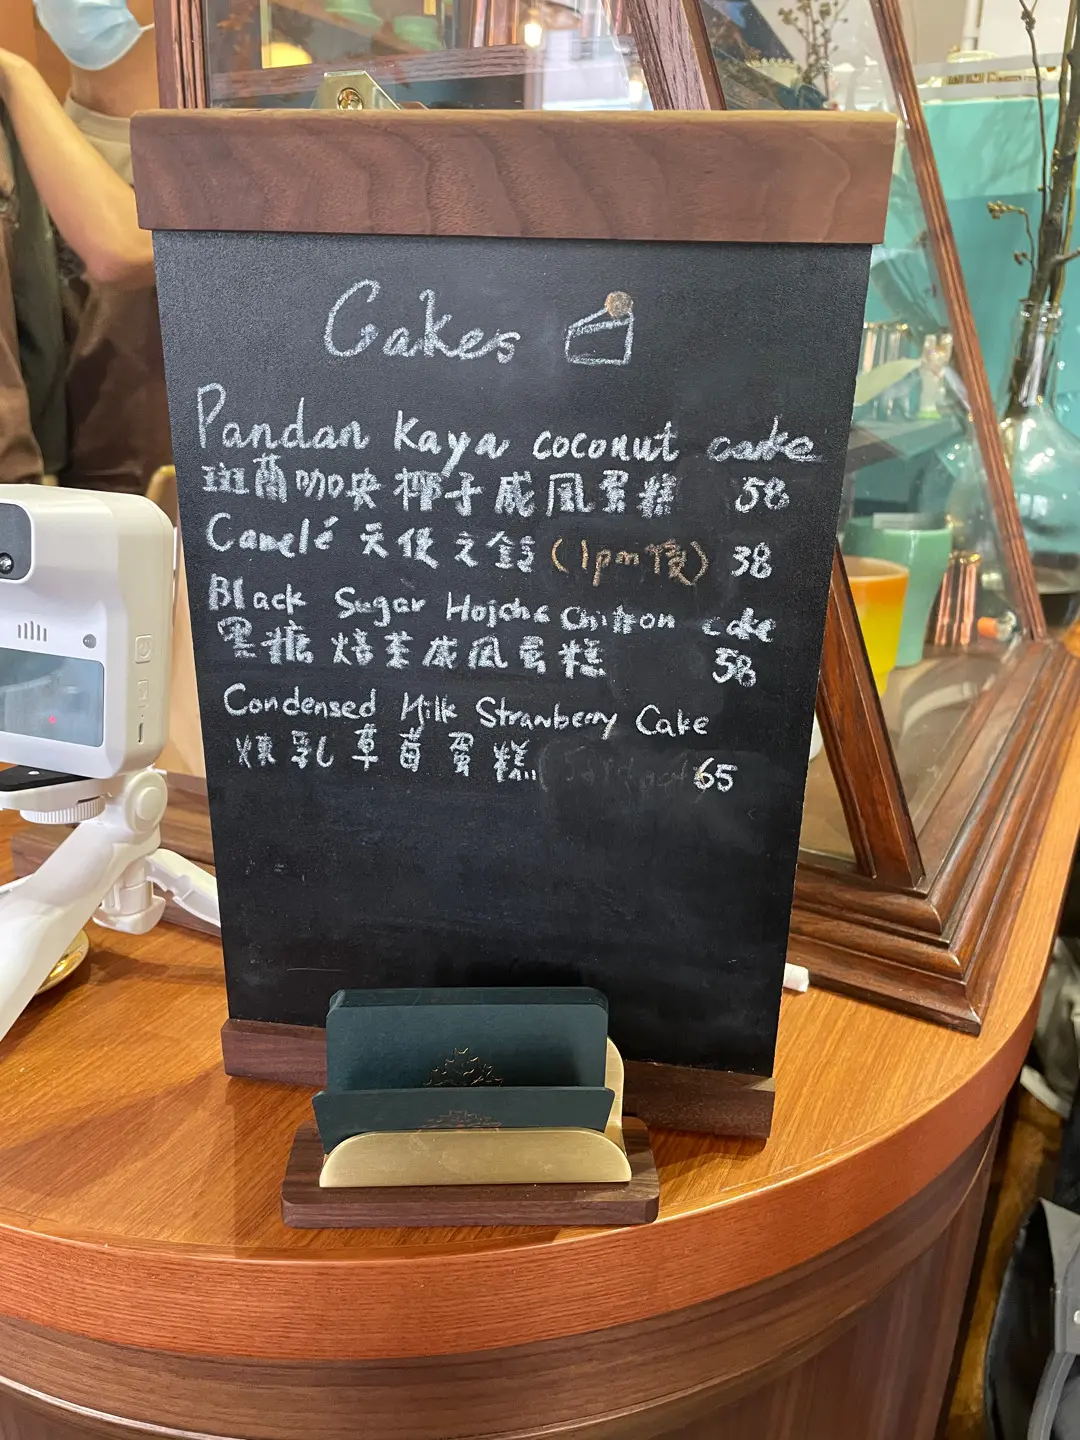 Cakes
Pandan Kaya coconut cake
斑蘭咖央椰子戚風蛋糕 58
Canelé 天使之鈴 (1pm後) 38
Black Sugar Hojcha Chiffon cake
黑糖焙茶戚風蛋糕 58
Condensed Milk Strawberry Cake
煉乳草莓蛋糕 65